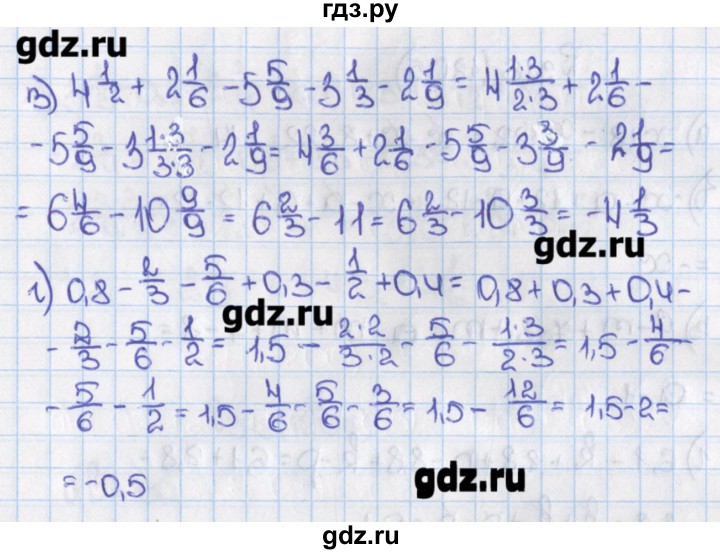 гдз.ру
gdz.ru
в) 4 1/2 + 2 1/6 - 5 5/9 - 3 1/3 - 2 1/9 = 4 1·3/2·3 + 2 1/6 -
- 5 5/9 - 3 1·3/3·3 - 2 1/9 = 4 3/6 + 2 1/6 - 5 5/9 - 3 3/9 - 2 1/9 =
= 6 4/6 - 10 9/9 = 6 2/3 - 11 = 6 2/3 - 10 3/3 = -4 1/3
gdz.ru
г) 0,8 - 2/3 - 5/6 + 0,3 - 1/2 + 0,4 = 0,8 + 0,3 + 0,4 -
gdz.ru
- 2/3 - 5/6 - 1/2 = 1,5 - 2·2/3·2 - 5/6 - 1·3/2·3 = 1,5 - 4/6 -
- 5/6 - 1/2 = 1,5 - 4/6 - 5/6 - 3/6 = 1,5 - 12/6 = 1,5 - 2 =
= -0,5
gdz.ru
gdz.ru